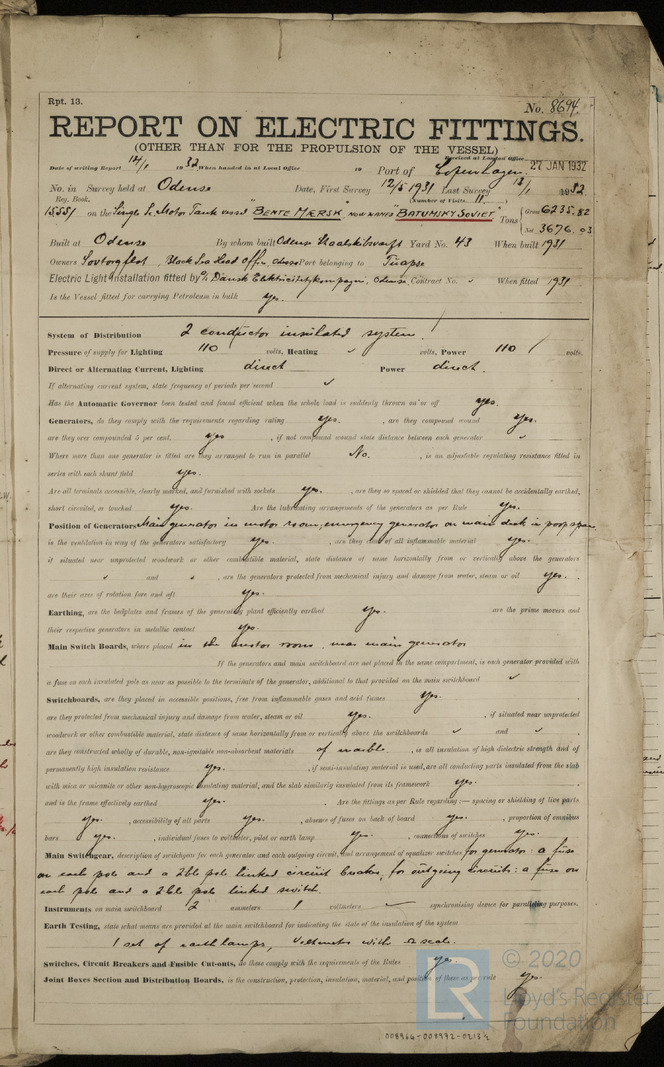 Rpt. 13.
No. 8694.
REPORT ON ELECTRIC FITTINGS.
(OTHER THAN FOR THE PROPULSION OF THE VESSEL)
Received at London Office 27 JAN 1932
Date of writing Report 14/1 1932 When handed in at Local Office 19 Port of Copenhagen.
No. in Survey held at Odense Date, First Survey 12/5 1931 Last Survey 13/1 1932
Reg. Book. (Number of Visits 11.
15551 on the Single Sc. Motor Tank vessel "BENTE MÆRSK" NOW NAMED "BATUMSKY SOVIET" Tons Gross 6235.82 Net 3676.03
Built at Odense By whom built Odense Staalskibsværft Yard No. 43 When built 1931
Owners Sovtorgflot, Black Sea Head Office, Odessa Port belonging to Tuapse
Electric Light Installation fitted by A/S Dansk Elektricitetskompagni, Odense Contract No. When fitted 1931
Is the Vessel fitted for carrying Petroleum in bulk yes.
System of Distribution 2 conductor insulated system
Pressure of supply for Lighting 110 volts, Heating volts, Power 110 volts.
Direct or Alternating Current, Lighting direct Power direct.
If alternating current system, state frequency of periods per second
Has the Automatic Governor been tested and found efficient when the whole load is suddenly thrown on or off yes.
Generators, do they comply with the requirements regarding rating yes. , are they compound wound yes.
are they over compounded 5 per cent. yes , if not compound wound state distance between each generator
Where more than one generator is fitted are they arranged to run in parallel No. , is an adjustable regulating resistance fitted in
series with each shunt field yes.
Are all terminals accessible, clearly marked, and furnished with sockets yes. , are they so spaced or shielded that they cannot be accidentally earthed,
short circuited, or touched yes. Are the lubricating arrangements of the generators as per Rule yes.
Position of Generators Main generator in motor room, emergency generator on main deck in poop
is the ventilation in way of the generators satisfactory yes. , are they clear of all inflammable material yes.
if situated near unprotected woodwork or other combustible material, state distance of same horizontally from or vertically above the generators
and , are the generators protected from mechanical injury and damage from water, steam or oil yes. ,
are their axes of rotation fore and aft yes.
Earthing, are the bedplates and frames of the generating plant efficiently earthed yes. are the prime movers and
their respective generators in metallic contact yes.
Main Switch Boards, where placed in the motor room, near main generator
If the generators and main switchboard are not placed in the same compartment, is each generator provided with
a fuse on each insulated pole as near as possible to the terminals of the generator, additional to that provided on the main switchboard
Switchboards, are they placed in accessible positions, free from inflammable gases and acid fumes yes.
are they protected from mechanical injury and damage from water, steam or oil yes. , if situated near unprotected
woodwork or other combustible material, state distance of same horizontally from or vertically above the switchboards and
are they constructed wholly of durable, non-ignitable non-absorbent materials of marble. , is all insulation of high dielectric strength and of
permanently high insulation resistance yes. , if semi-insulating material is used, are all conducting parts insulated from the slab
with mica or micanite or other non-hygroscopic insulating material, and the slab similarly insulated from its framework yes.
and is the frame effectively earthed yes. Are the fittings as per Rule regarding:— spacing or shielding of live parts
yes. , accessibility of all parts yes. , absence of fuses on back of board yes. , proportion of omnibus
bars yes. , individual fuses to voltmeter, pilot or earth lamp yes. , connections of switches yes.
Main Switchgear, description of switchgear for each generator and each outgoing circuit, and arrangement of equaliser switches for generator: a fuse
on each pole and a dble pole linked circuit breaker, for outgoing circuits: a fuse on
each pole and a dble pole linked switch
Instruments on main switchboard 2 ammeters 1 voltmeters synchronising device for paralleling purposes.
Earth Testing, state what means are provided at the main switchboard for indicating the state of the insulation of the system
1 set of earth lamps, Voltmeter with Ω scale.
Switches, Circuit Breakers and Fusible Cut-outs, do these comply with the requirements of the Rules yes.
Joint Boxes Section and Distribution Boards, is the construction, protection, insulation, material, and position of these as per rule yes.
© 2020
LR Lloyd's Register
Foundation
008964-008972-0213½